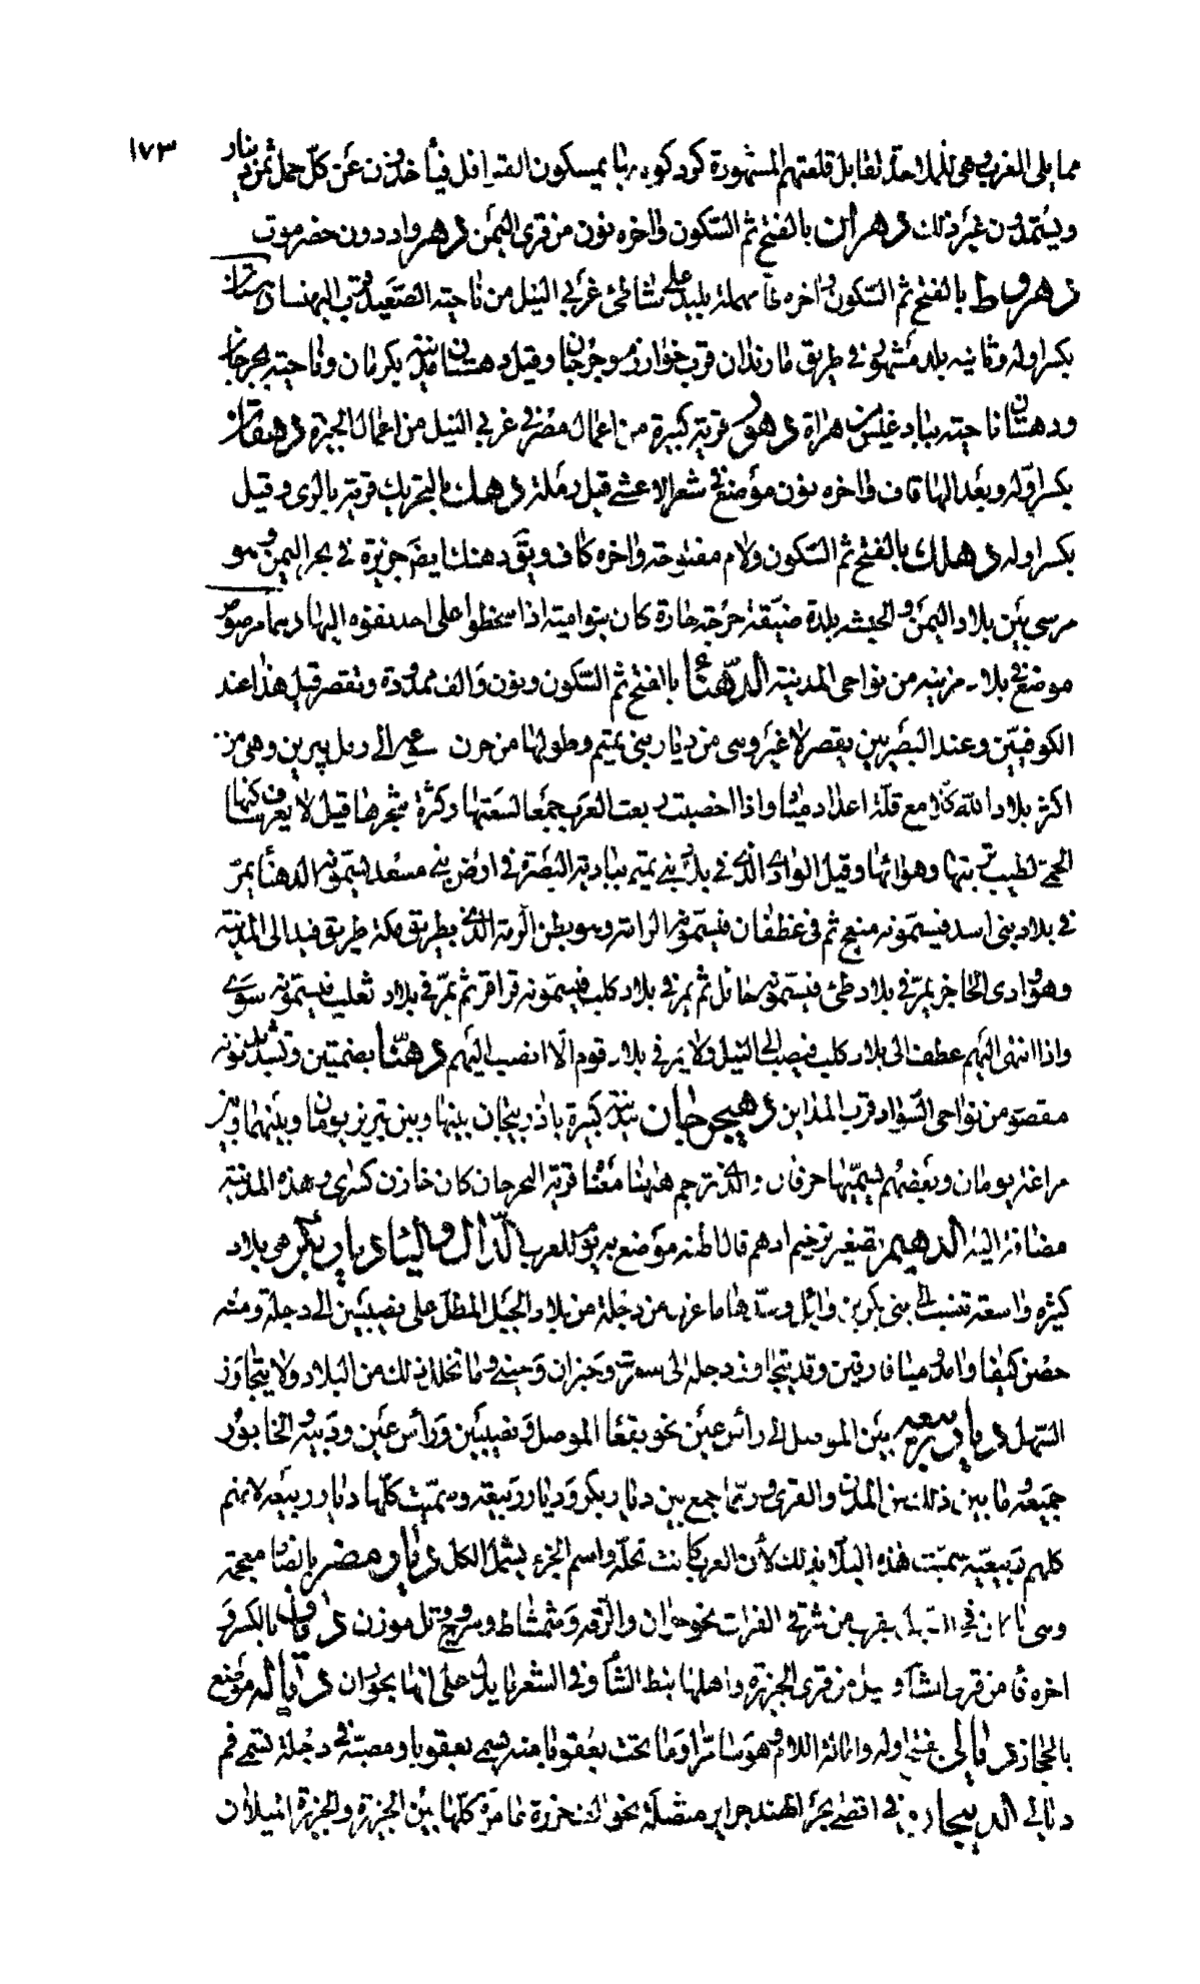 ١٧٣
مما يلى الغرب وهى للملاحدة تقابل قلعتهم المشهورة كردكوه ربما يمسكون القوافل فيأخذون عن كل حمل ثمن دينار
ويستمدون غير ذلك دهران بالفتح ثم السكون واخره نون من قرى اليمن دهر واد دون حضرموت
دهروط بالفتح ثم السكون واخره طا مهملة بليد على شاطئ غربى النيل من ناحية الصعيد قرب البهنسا دهستان
بكسر اوله وثانيه بلد مشهور فى طريق مازندان قرب خوارزم وجرجان وقيل دهستان مدينة بكرمان وناحية بجرجان
ودهستان ناحية بباد غيس من هراة دهور قرية كبيرة من اعمال مصر فى غربى النيل من اعمال الجيزة دهقان
بكسر اوله وبعد الها قاف واخره نون موضع فى شعر الاعشى قيل رملة دهك بالتحريك قرية بالرى وقيل
بكسر اوله دهلك بالفتح ثم السكون ولام مفتوحة واخره كاف ويق دهنك ايضا جزيرة فى بحر اليمن وهو
مرسى بين بلاد اليمن والحبشه بلدة ضيقة حرجة حارة كان بنوامية اذا سخطوا على احد نفوه اليها دهما مرضوض
موضع فى بلاد مزينه من نواحى المدينة الدهنا بالفتح ثم السكون ونون والف ممدودة وتقصر قيل هذا عند
الكوفيين وعند البصريين يقصر لاغير وسى من ديار بنى تميم وطولها من حزن الى رمل يبرين وهى من
اكثر بلاد الله كلا مع قلة اعداد مياه واذا اخصبت ربعت العرب جمعا لسعتها وكثرة شجرها قيل لا يعرف ساكنها
الحمى لطيب تربتها وهوائها وقيل الوادى الذى فى بلاد بنى تميم ببادية البصرة فى ارض بنى سعد يسمونه الدهنا يمر
فى بلاد بنى اسد فيسمونه منعج ثم فى غطفان فيسمونه الرامة وهو بطن الرمة الذى بطريق مكة طريق فيد الى المدينة
وهو وادى الحاجر يمر فى بلاد طئ فيسمونه حائل ثم يمر فى بلاد كلب فيسمونه قراقر ثم يمر فى بلاد تغلب فيسمونه سوى
واذا انتهى اليهم عطف الى بلاد كلب فيصب الى النيل ولا يمر فى بلاد قوم الا انصب اليهم دهنا بضمتين وتشديد نونه
مقصور من نواحى السواد قرب المداين دهيجرجان مدينة كبيرة باذربيجان بينها وبين تبريز يومان وبينها وبين
مراغة يومان وبعضهم يسميها حرقان والذى ترجم هاهنا معنا قرية النحرجان كان خازن كسرى وهذه المدينة
مضافة اليه الدهيم تصغير ترخيم ادهم قال اظنه موضع به يوم للعرب الدال واليا ديار بكر هى بلاد
كبيره واسعة تنسب الى بنى بكر بن وائل وحدها ما غرب من دجلة من بلاد الجبل المطل على نصيبين الى دجلة ومنه
حصن كيفا وامد وميافارقين وقد يتجاوز دجلة الى سعرت وحيزان وحينى وما تخلل ذلك من البلاد ولا يتجاوز
السهل ديار ربيعه بين الموصل الى رأس عين نحو بقعا الموصل ونصيبين ورأس عين ودنيسر والخابور
جميعه وما بين ذلك من المدن والقرى وربما جمع بين ديار بكر وديار ربيعه وسميت كلها ديار ربيعه لانهم
كلهم ربيعة سميت هذه البلاد بذلك لأن العرب كانت تحله واسم الجزء يشمل الكل ديار مضر بالضاد معجمة
وسى ما كان فى السهل بقرب من شرقى الفرات نحو حران والرقه وشمشاط وسروج وتل موزن دياف بالكسر و
اخره فا من قرى الشأم وقيل من قرى الجزيرة واهلها نبط الشأم وفى الشعر ما يدل على انها بحوران ديالة موضع
بالحجاز ديالى بفتح اوله وامالة اللام وهو ما تحت بعقوبا منه يسمى بعقوبا ومصبه فى دجلة يسمى فم
ديالى الديبجات فى اقصى بحر الهند جزاير متصلة نحو الف جزيرة عامرة كلها بين الجزيرة والجزيرة الميلان